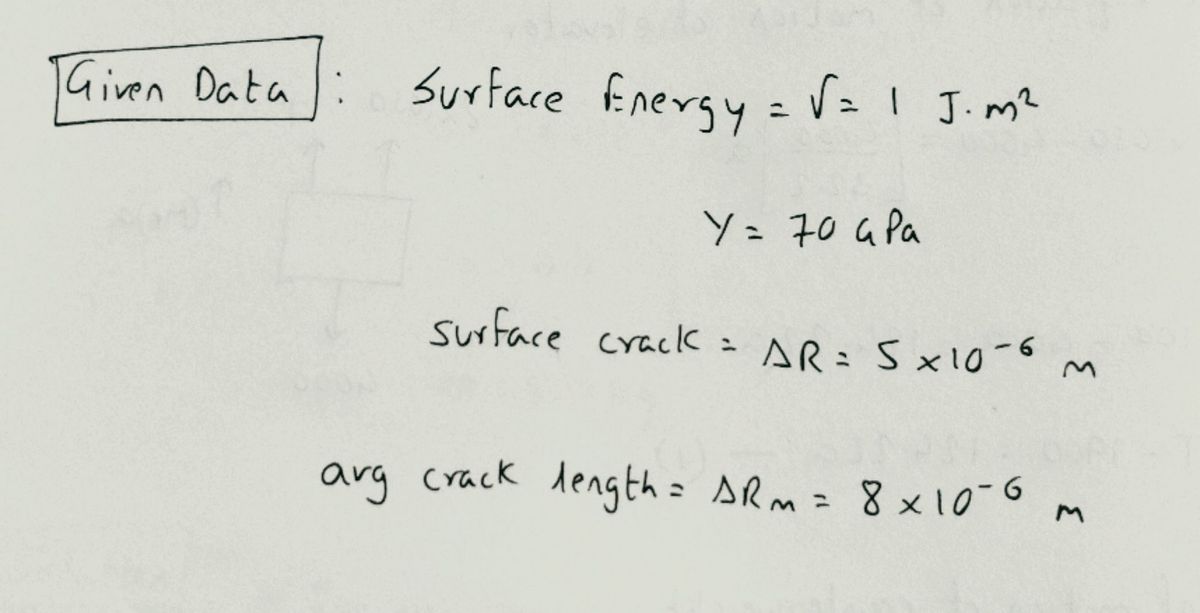 Given Data : Surface Energy = √ = 1 J.m²
Y = 70 GPa
surface crack = ΔR = 5 x 10⁻⁶ m
avg crack length = ΔRm = 8 x 10⁻⁶ m